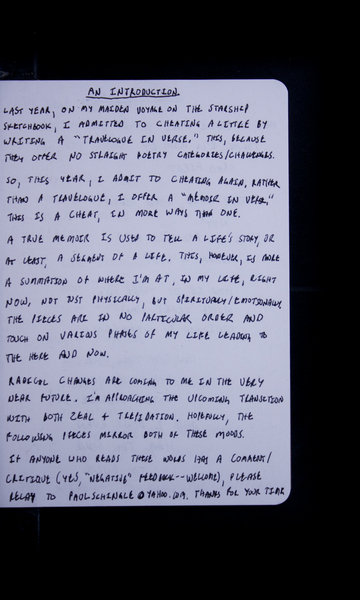 AN INTRODUCTION.
LAST YEAR, ON MY MAIDEN VOYAGE ON THE STARSHIP
SKETCHBOOK, I ADMITTED TO CHEATING A LITTLE BY
WRITING A "TRAVELOGUE IN VERSE." THIS, BECAUSE
THEY OFFER NO STRAIGHT POETRY CATEGORIES/CHALLENGES.
SO, THIS YEAR, I ADMIT TO CHEATING AGAIN, RATHER
THAN A TRAVELOGUE, I OFFER A "MEMOIR IN VERSE."
THIS IS A CHEAT, IN MORE WAYS THAN ONE.
A TRUE MEMOIR IS USED TO TELL A LIFE'S STORY, OR
AT LEAST, A SEGMENT OF A LIFE. THIS, HOWEVER, IS MORE
A SUMMATION OF WHERE I'M AT, IN MY LIFE, RIGHT
NOW, NOT JUST PHYSICALLY, BUT SPIRITUALLY/EMOTIONALLY.
THE PIECES ARE IN NO PARTICULAR ORDER AND
TOUCH ON VARIOUS PHASES OF MY LIFE LEADING TO
THE HERE AND NOW.
RADICAL CHANGES ARE COMING TO ME IN THE VERY
NEAR FUTURE. I'M APPROACHING THE UPCOMING TRANSITION
WITH BOTH ZEAL + TREPIDATION. HOPEFULLY, THE
FOLLOWING PIECES MIRROR BOTH OF THESE MOODS.
IF ANYONE WHO READS THESE WORDS HAS A COMMENT/
CRITIQUE (YES, "NEGATIVE" FEEDBACK--WELCOME), PLEASE
RELAY TO PAULSCHINGLE@YAHOO.COM. THANKS FOR YOUR TIME